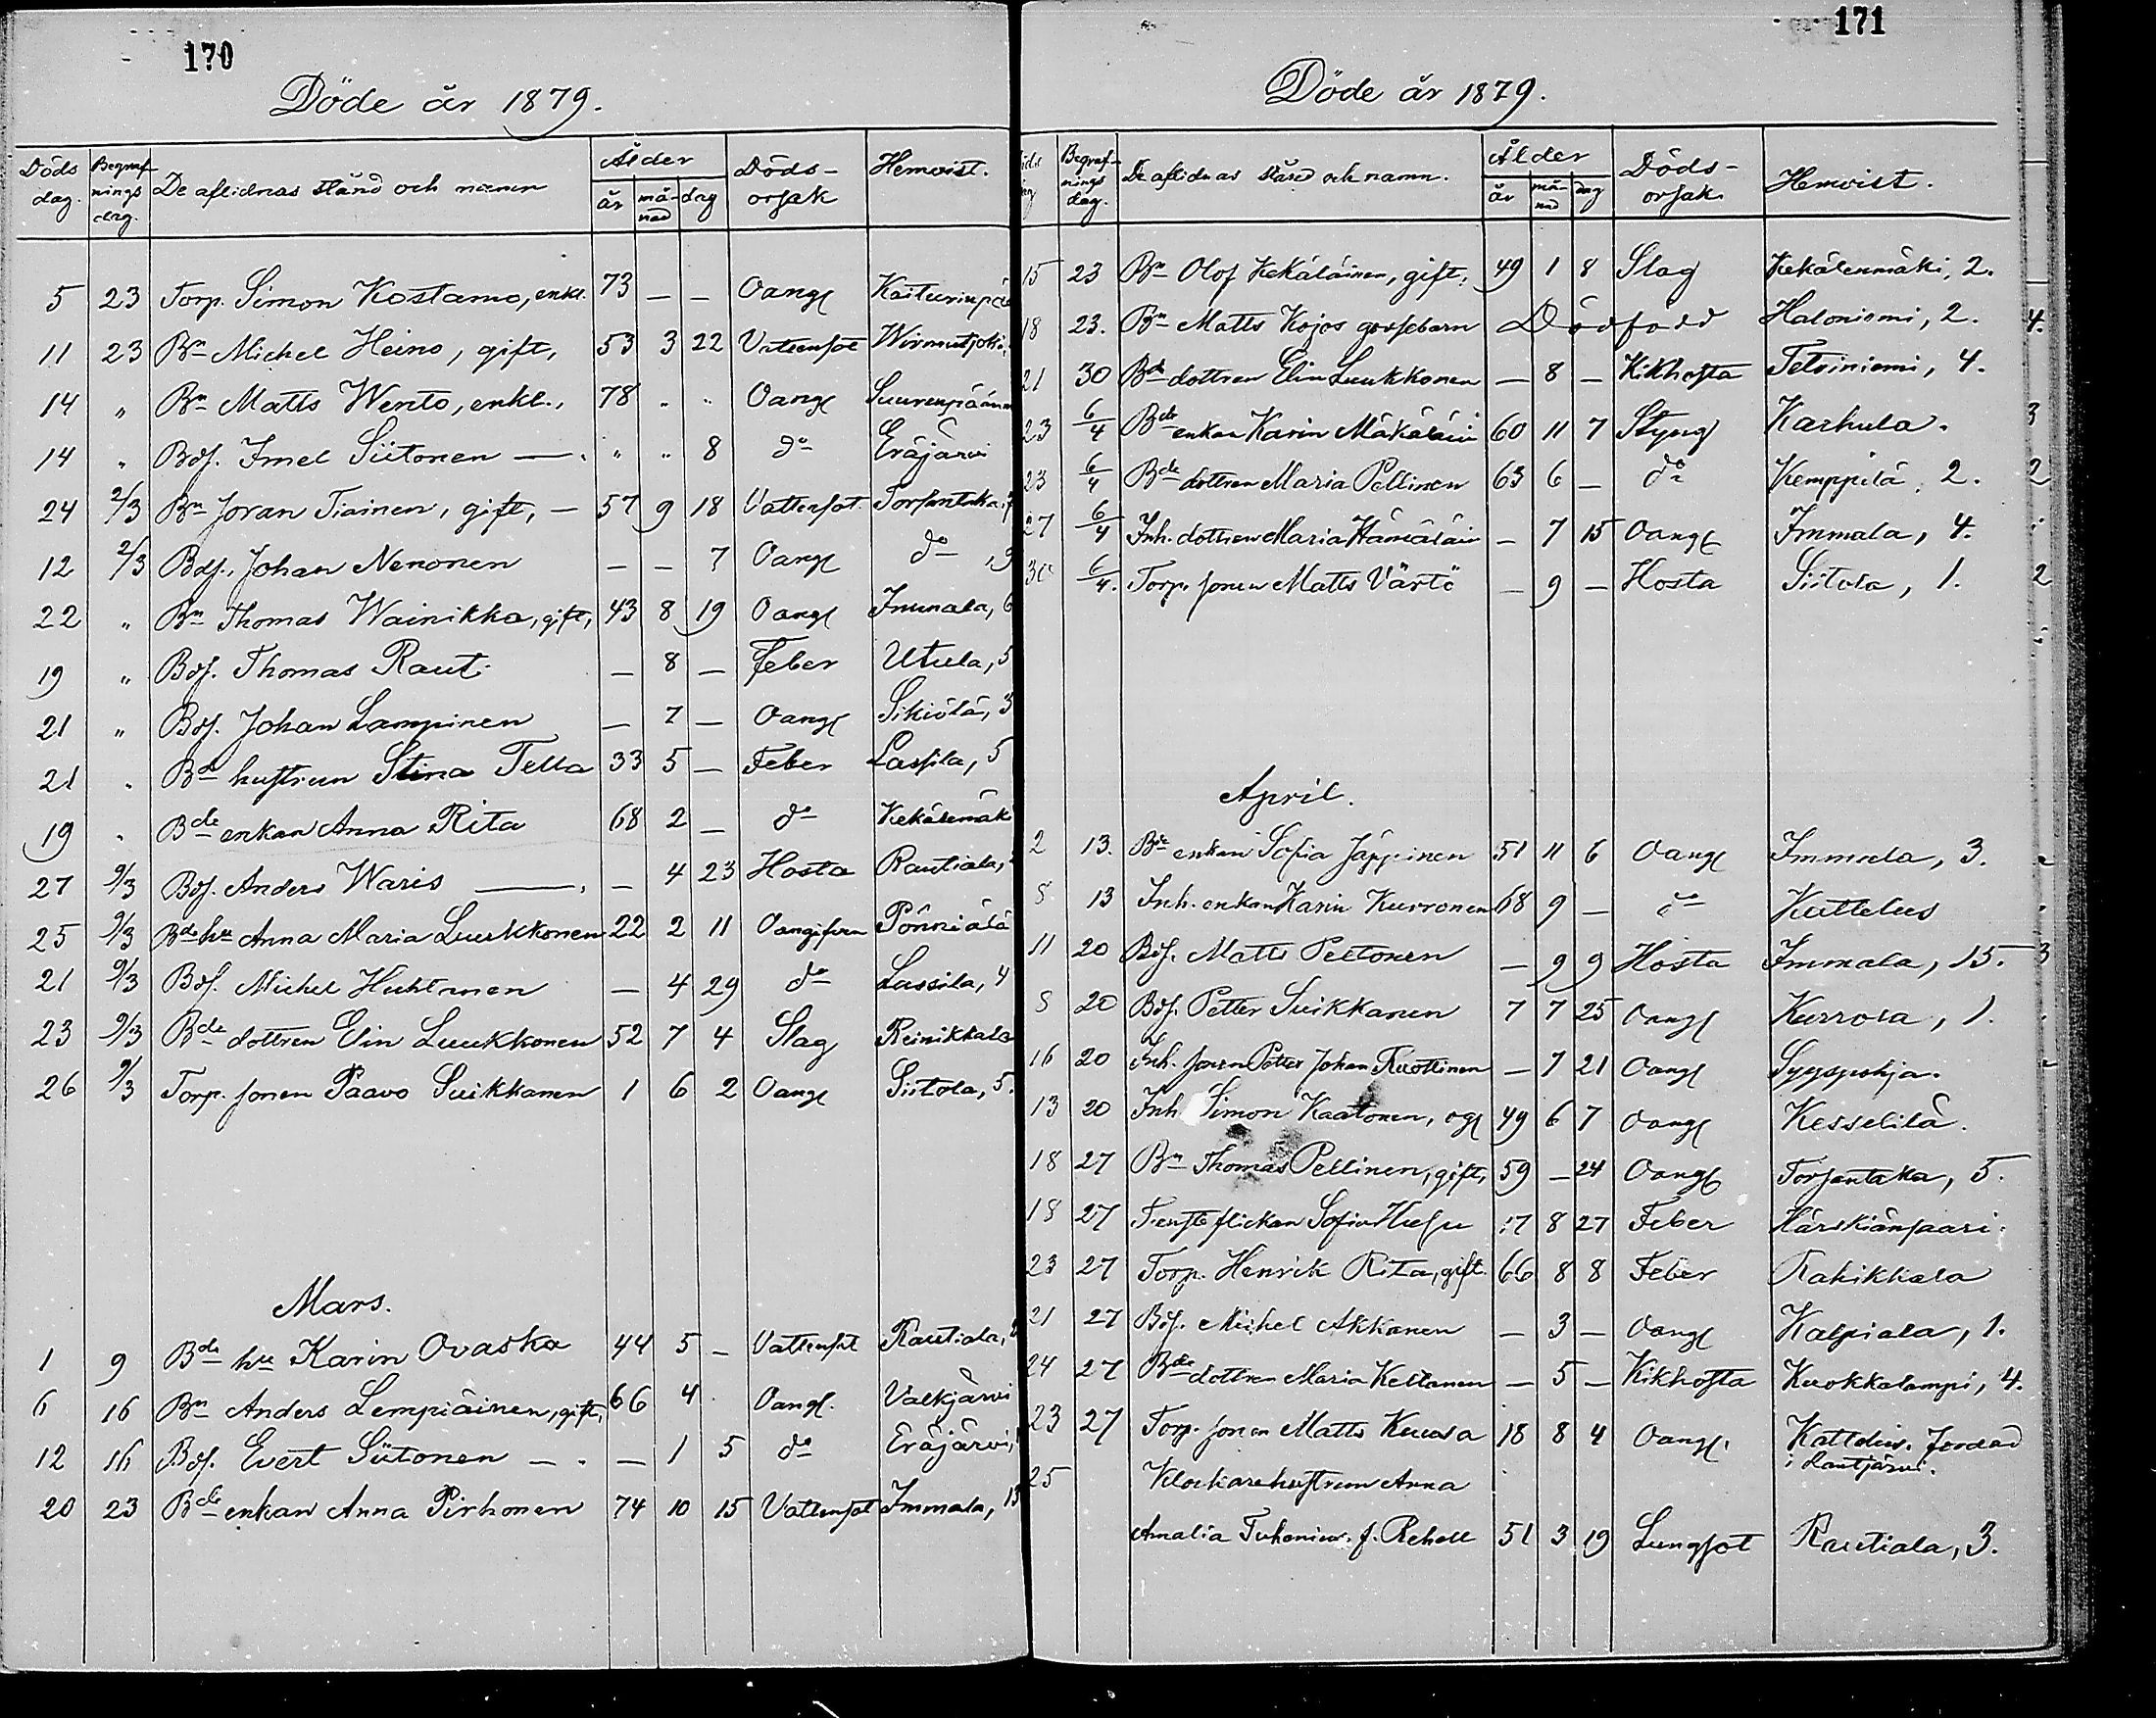 170
Döde år 1879.
Döds dag. Begrafnings dag. De aflidnas stånd och namn Ålder år månad dag Dödsorsak Hemvist.
5 23 Torp. Simon Kostamo, enkl. 73 — — Oang
11 23 Bn Michel Heino, gift, 53 3 22 Vattensot Wirmutjoki
14 " Bn Matts Wento, enkl., 78 " " Oang
14 " Bds. Imel Siitonen — " " 8 do Eräjärvi
24 2/3 Bn Joran Tiainen, gift, — 57 9 18 Vattensot Torsantaka
12 2/3 Bds. Johan Nenonen — — 7 Oang do
22 " Bn Thomas Wainikka, gift, 43 8 19 Oang Immala, 6
19 " Bds. Thomas Raut — 8 — Feber Utula, 5
21 " Bds. Johan Lampinen — 7 — Oang Sikiölä, 3
21 " Bde hustrun Stina Tella 33 5 — Feber Lassila, 5
19 " Bde enkan Anna Rita 68 2 — do Kekälemäki
27 9/3 Bds. Anders Waris — — 4 23 Hosta Rautiala,
25 9/3 Bde hu Anna Maria Luukkonen 22 2 11 Pönniälä
21 9/3 Bds. Michel Huhtanen — 4 29 do Lassila, 4
23 9/3 Bde dottren Elin Luukkonen 52 7 4 Slag Reinikkala
26 9/3 Torp. sonen Paavo Suikkanen 1 6 2 Oang Siitola, 5.
Mars.
1 9 Bde hu Karin Ovaska 44 5 — Vattensot Rautiala,
6 16 Bn Anders Lempiäinen, gift, 66 4 Oang. Valkjärvi
12 16 Bds. Evert Siitonen — — 1 5 do Eräjärvi,
20 23 Bde enkan Anna Pirhonen 74 10 15 Vattensot Immala, 13
171
Döde år 1879.
Begrafnings dag. De aflidnas stånd och namn. Ålder år månad dag Dödsorsak Hemvist.
15 23 Bn Olof Kekäläinen, gift, 49 1 8 Slag Kekälenmäki, 2.
18 23. Bn Matts Kojos gossebarn Dödfödd Haloniemi, 2.
21 30 Bde dottren Elin Luukkonen — 8 — Kikhosta Tetriniemi, 4.
23 6/4 Bde enkan Karin Mäkäläin 60 11 7 Styng Karhula.
23 6/4 Bde dottren Maria Pellinen 63 6 — do Kemppilä, 2.
27 6/4 Inh. dottren Maria Hämäläin — 7 15 Oang Immala, 4.
30 6/4. Torp. sonen Matts Värtö — 9 — Hosta Siitola, 1.
April.
2 13. Bde enkan Sofia Jäppinen 51 11 6 Oang Immala, 3.
8 13 Inh. enkan Karin Kurronen 68 9 — do Kattelus
11 20 Bds. Matts Peltonen — 9 9 Hosta Immala, 15.
8 20 Bds. Petter Suikkanen 7 7 25 Oang Kurrola, 1.
16 20 Inh. sonen Petter Johan Ruottinen — 7 21 Oang Syyspohja.
13 20 Inh. Simon Kaatonen, og 49 6 7 Oang Kesselilä.
18 27 Bn Thomas Pellinen, gift, 59 — 24 Oang Torsantaka, 5.
18 27 flickan Sofia 17 8 27 Feber Härskiänsaari.
23 27 Torp. Henrik Rita, gift. 66 8 8 Feber Rahikkala
21 27 Bds. Michel Akkanen — 3 — Oang Kalpiala, 1.
24 27 Bde dottren Maria Keltanen — 5 — Kikhosta Kuokkalampi, 4.
23 27 Torp. sonen Matts Kuusa 18 8 4 Oang. Kattelus. Jordad
i Rautjärvi.
25 Klockarehustrun Anna
Amalia f. Rehell 51 3 19 Lungsot Rautiala, 3.